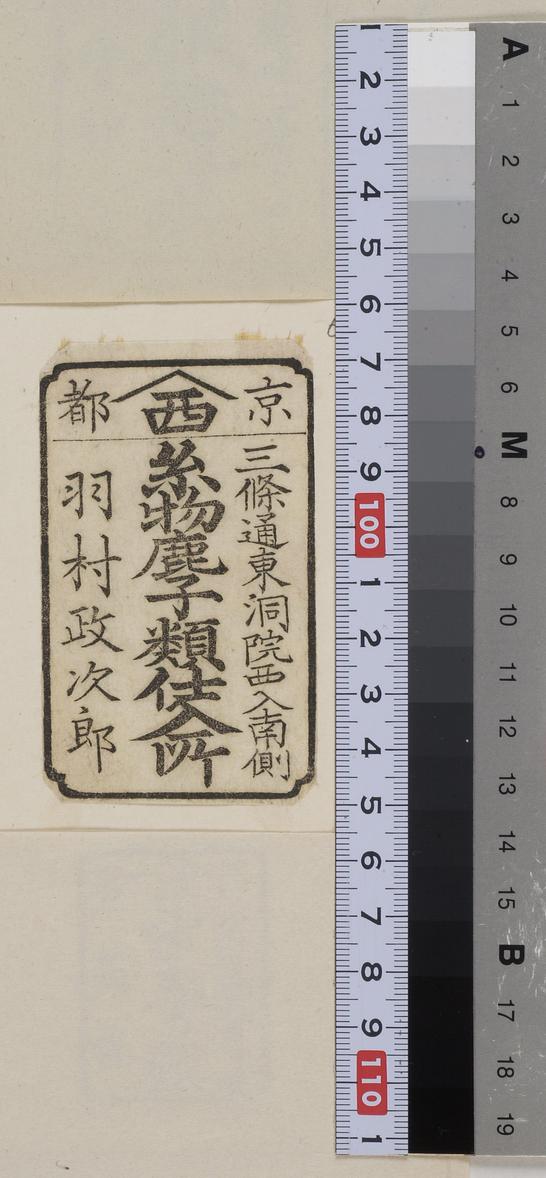 京都
西
三條通東洞院西入南側
糸物鹿子類仕入所
羽村政次郎
1 2 3 4 5 6 7 8 9 100 1 2 3 4 5 6 7 8 9 110 1
A 1 2 3 4 5 6 M 8 9 10 11 12 13 14 15 B 17 18 19